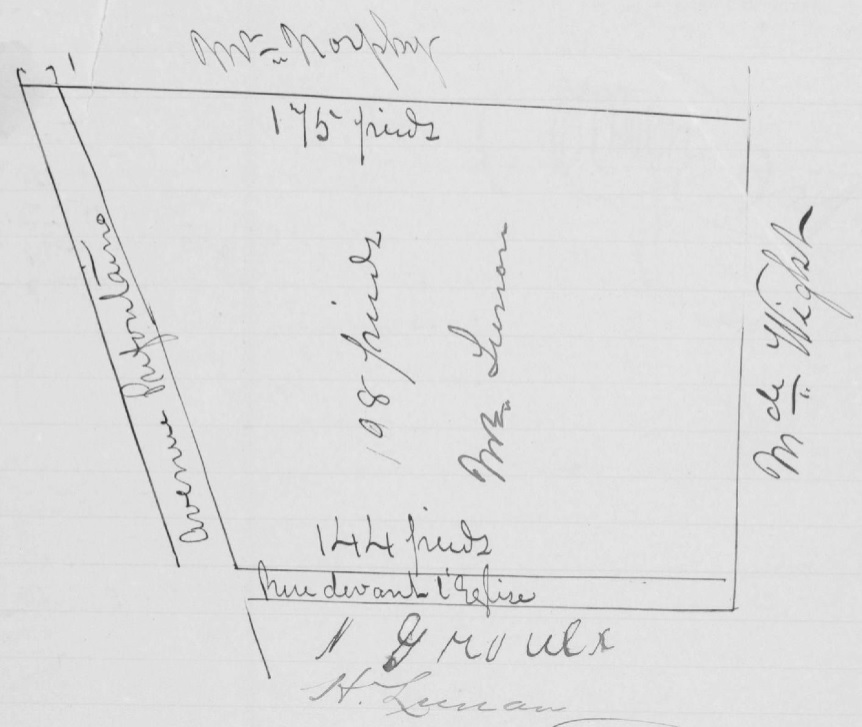 Mr Morphy
175 pieds
Avenue Préfontaine
198 pieds
Mr Lunan
Mde Wight
144 pieds
Rue devant l'Eglise
N Groulx
H. Lunan